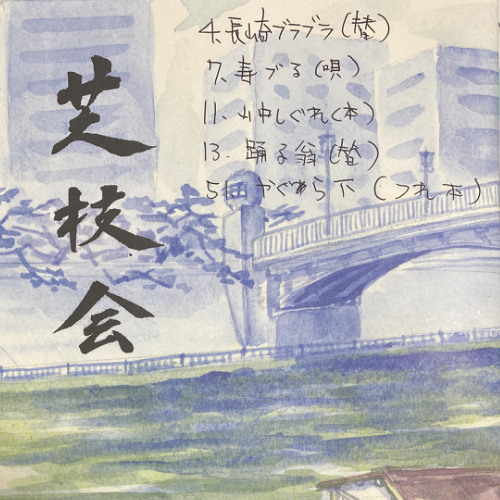 芝枝会
4、長崎ブラブラ(替)
7、寿づる(唄)
11、山中しぐれ(本)
13. 踊る翁(替)
かぐめら下(つれ本)